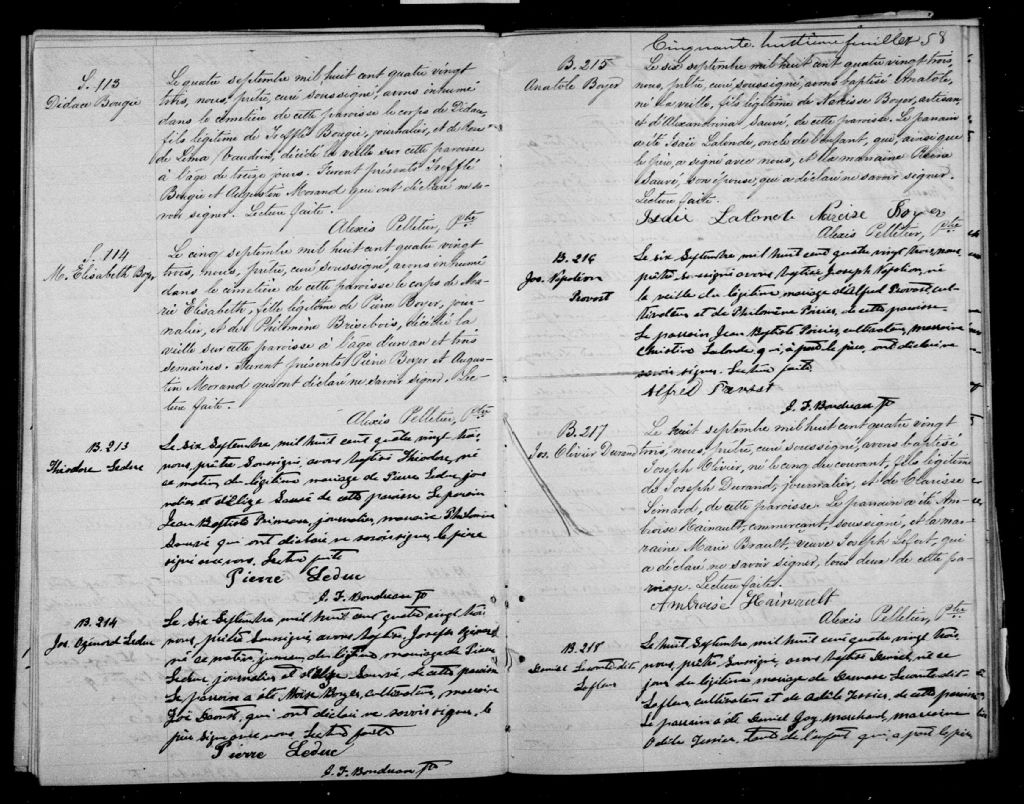 S. 113
Didace Bougie
Le quatre septembre mil huit cent quatre vingt
trois, nous, prêtre, curé soussigné, avons inhumé
dans le cimetière de cette paroisse le corps de Didace,
fils légitime de Trefflé Bougie, journalier, et de
de Léna Vaudrin, décédé la veille sur cette paroisse
à l'âge de treize jours. Furent présents Trefflé
Bougie et Augustin Morand qui ont déclaré ne sa-
voir signer. Lecture faite.
Alexis Pelletier, Ptre
S. 114
M. Elisabeth Boyer
Le cinq septembre mil huit cent quatre vingt
trois, nous, prêtre, curé soussigné, avons inhumé
dans le cimetière de cette paroisse le corps de Ma-
rie Elisabeth, fille légitime de Pierre Boyer, jour-
nalier, et de Philomène Brisebois, décédée la
veille sur cette paroisse à l'âge d'un an et trois
semaines. Furent présents Pierre Boyer et Augus-
tin Morand qui ont déclaré ne savoir signer. Lec-
ture faite.
Alexis Pelletier, Ptre
B. 213
Théodore Leduc
Le six Septembre mil huit cent quatre vingt troi,
nous, prêtre Soussigné, avons baptisé Théodore, né
ce matin, du légitime mariage de Pierre Leduc, jour
nalier et d'Elize Sauvé de cette paroisse Le parain
Jean Baptiste Primeau, journalier, maraine Philomène
Sauvé qui ont déclaré ne savoir signer, le père
signé avec nous, Lecture faite
Pierre Leduc
G. F. Bondueau Ptr
B. 214
Jos. Ozénord Leduc
Le six Septembre mil huit cent quatre vingt troi
nous, prêtre Soussigné, avons baptisé, Joseph
né ce matin, jumeau, du légitime mariage de Pierre
Leduc, journalier et d'Elize Sauvé, de cette paroisse
Le parain a été Moïse Boyer, cultivateur, maraine
Zoé qui ont déclaré ne savoir signer, le
père signe avec nous, Lecture faite
Pierre Leduc
G. F. Bondueau Ptr
Cinquante huitième feuillet 58
B. 215
Anatole Boyer
Le six septembre mil huit cent quatre vingt trois,
nous, prêtre, curé soussigné, avons baptisé Anatole,
né la veille, fils légitime de Narcisse Boyer, artisan,
et d'Alexandrina Sauvé, de cette paroisse. Le parrain
a été Isaïe Lalonde, oncle de l'enfant, qui, ainsi que
le père, a signé avec nous, et la marraine
Sauvé, son épouse, qui a déclaré ne savoir signer.
Lecture faite.
Isaie Lalonde Narcise Boyer
Alexis Pelletier, Ptre
B. 216
Jos. Népoléon
Provost
Le six Septembre mil huit cent quatre vingt trois, nous,
prêtre soussigné avons baptisé Joseph Népoléon, né
la veille du légitime mariage d'Alfred Provost, cul-
tivateur et de Philomène Poirier, de cette paroisse.
Le parrain Jean Baptiste Poirier, cultivateur, marraine
Christine Lalonde qui, à part le père, ont déclaré ne
savoir signer. Lecture faite
Alfred
G. F. Bondueau Ptr
B. 217
Jos. Olivier Durand
Le huit septembre mil huit cent quatre vingt
trois, nous, prêtre, curé soussigné, avons baptisé
Joseph Olivier, né le cinq du courant, fils légitime
de Joseph Durand, journalier, et de Clarisse
Simard, de cette paroisse. Le parrain a été Am-
broise Hainault, commerçant, soussigné, et la mar-
raine Marie Brault, veuve Joseph Lefort, qui
a déclaré ne savoir signer, tous deux de cette pa-
roisse. Lecture faite.
Ambroise Hainault
Alexis Pelletier, Ptre
B. 218
Daniel Lecomte dit
Lafleur
Le huit Septembre mil huit cent quatre vingt troi
nous, prêtre, Soussigné, avons baptisé Daniel, né ce
jour du légitime mariage de Lecomte dit
Lafleur, cultivateur et de Odile Tessier, de cette paroisse
Le parrain a été Daniel Gay, marchand, marraine
Odile Tessier, tante de l'enfant qui, à part le père